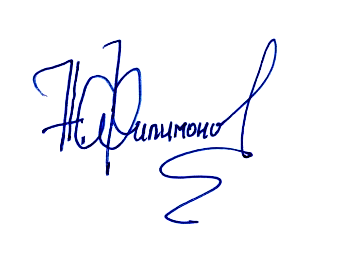 Н.Филимонов